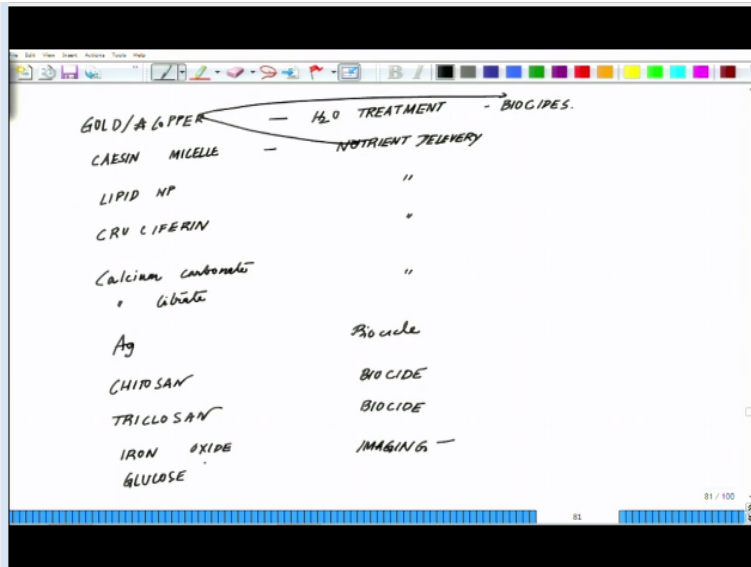 File Edit View Insert Actions Tools Help
GOLD/A COPPER — H2O TREATMENT - BIOCIDES.
CAESIN MICELLE — NUTRIENT DELEVERY
LIPID NP "
CRUCIFERIN "
Calcium carbonate "
" Citrate
Ag Biocide
CHITOSAN BIOCIDE
TRICLOSAN BIOCIDE
IRON OXIDE IMAGING —
GLUCOSE
81 / 100
81